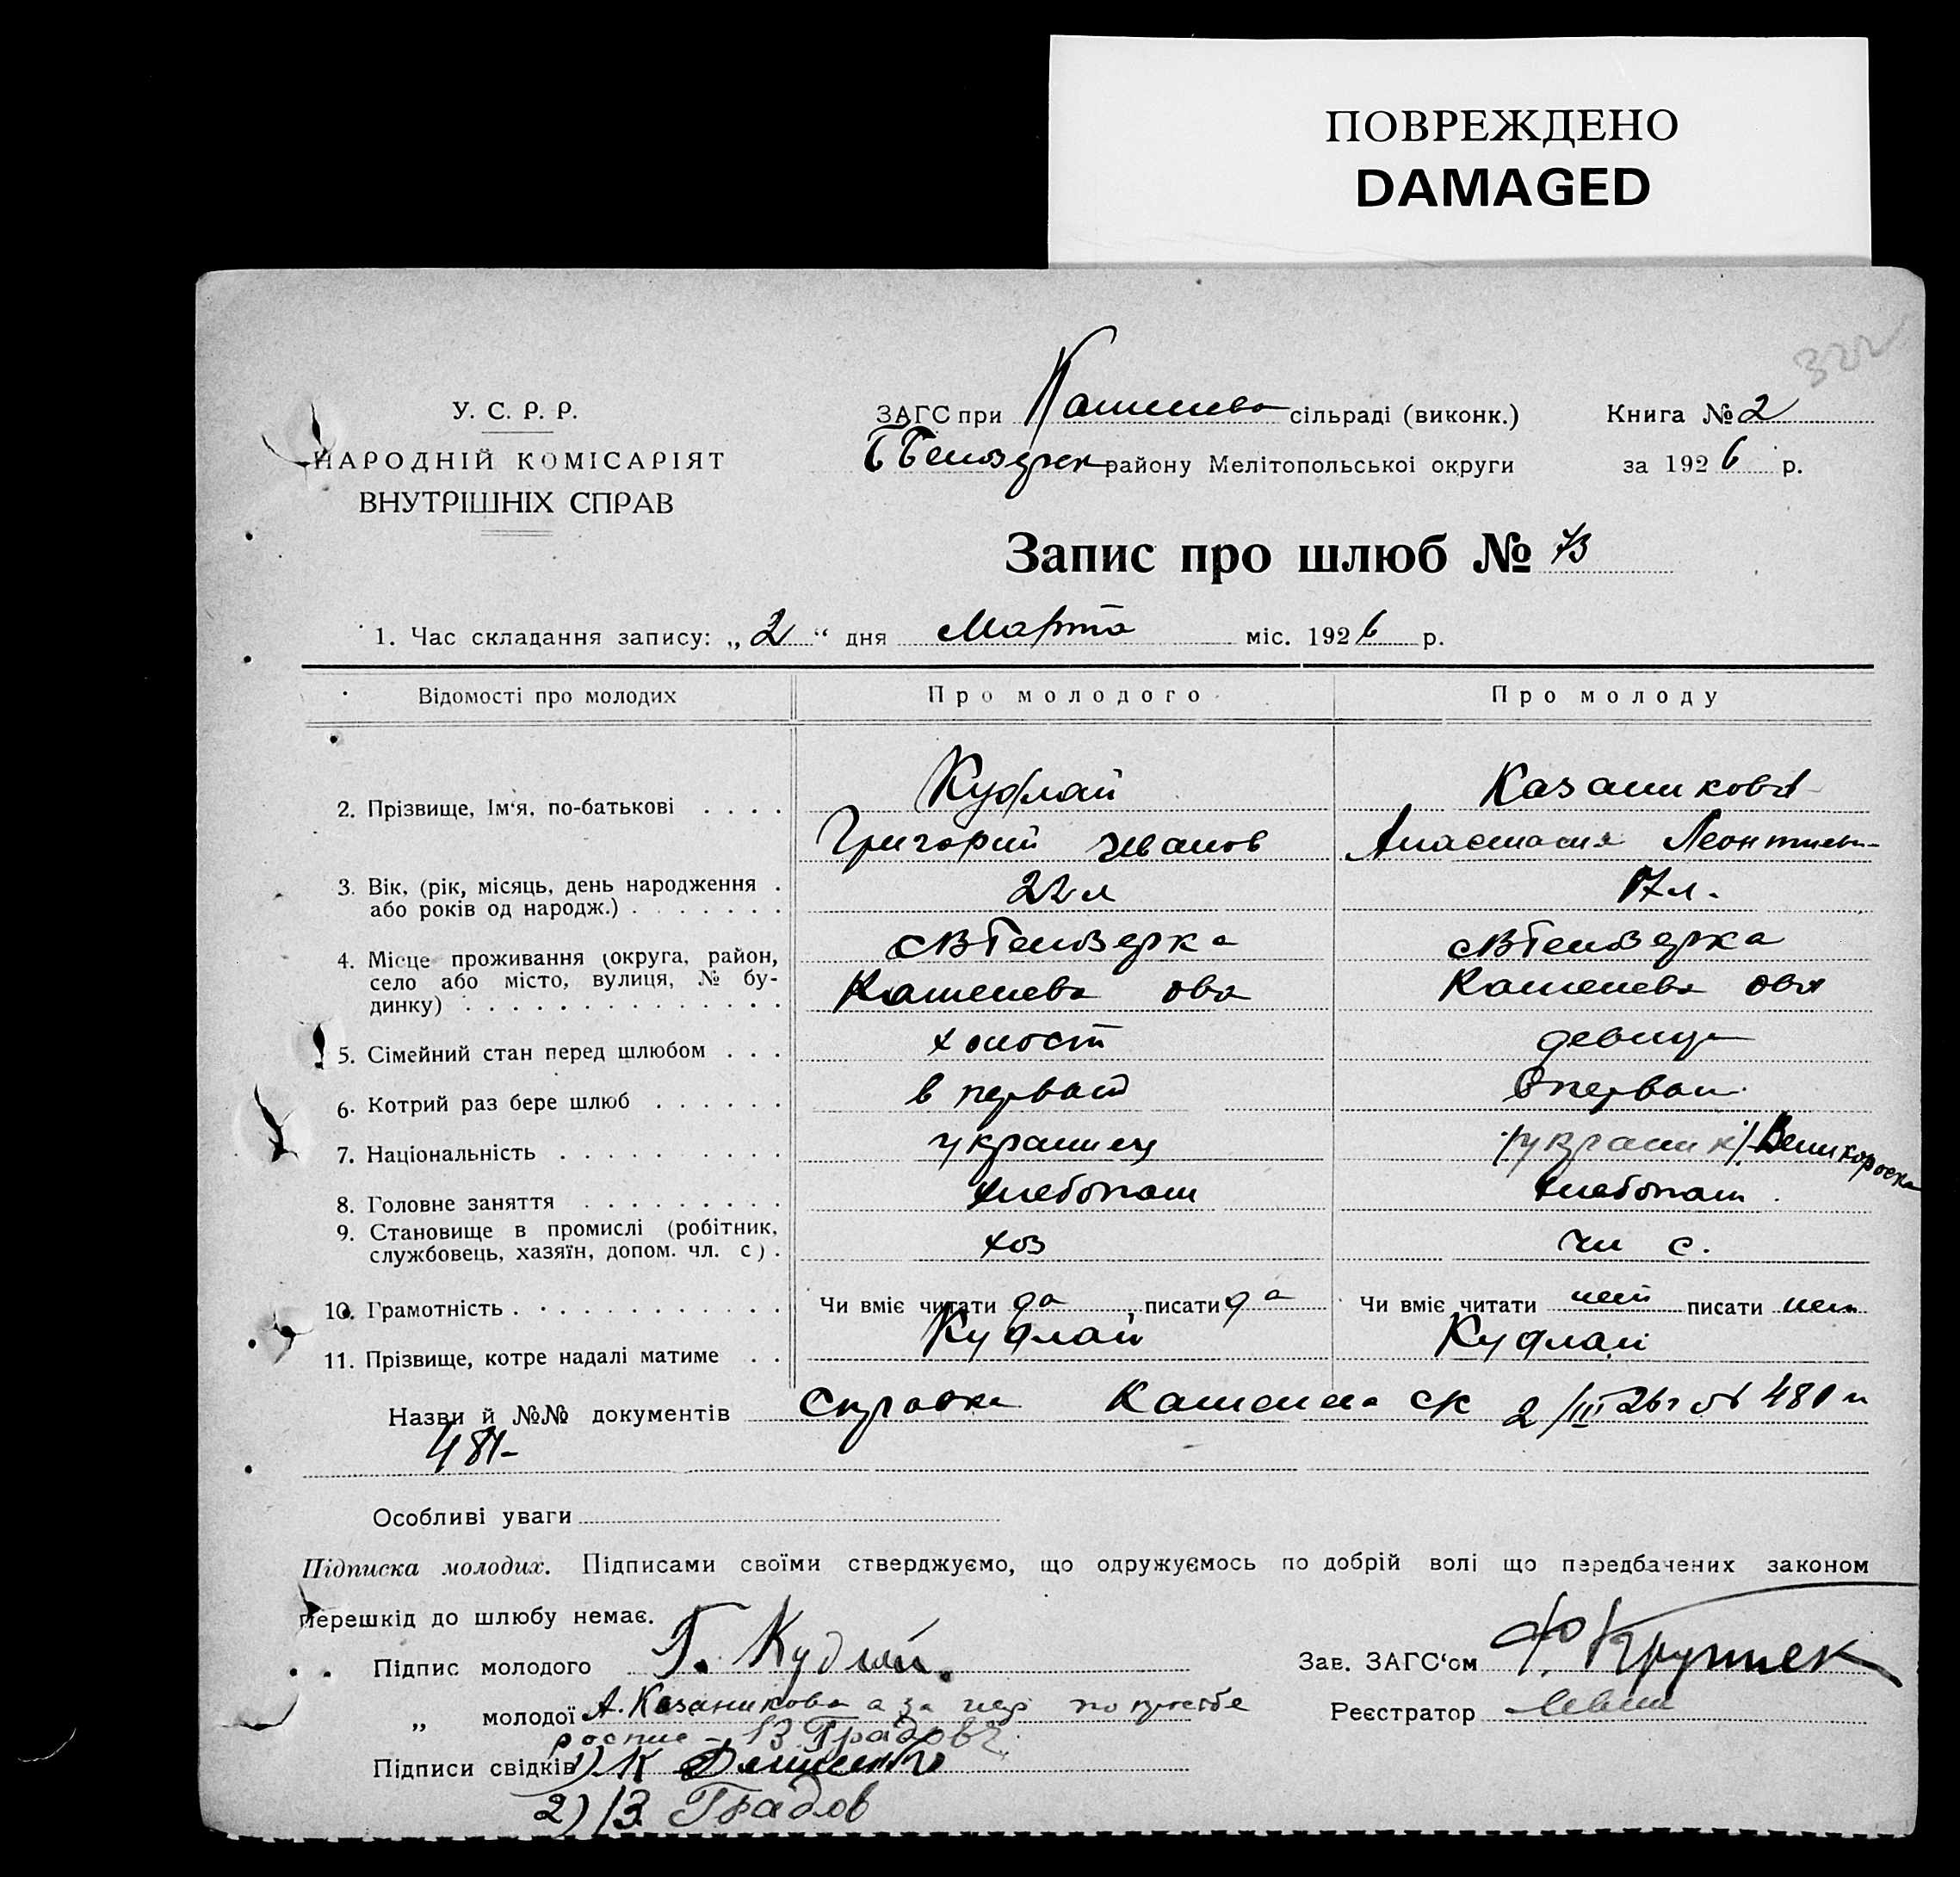 ПОВРЕЖДЕНО
DAMAGED
322
У. С. Р. Р.
НАРОДНІЙ КОМІСАРІЯТ
ВНУТРІШНІХ СПРАВ
ЗАГС при сільраді (виконк.) Книга № 2
району Мелітопольської округи за 1926 р.
Запис про шлюб № 73
1. Час складання запису: „2“ дня Марта міс. 1926 р.
Відомості про молодих Про молодого Про молоду
2. Прізвище, Ім'я, по-батькові . . . . Кудлай Казаникова
Григорий Иванов Анастасия Леонтиев
3. Вік, (рік, місяць, день народження .
або років од народж.) . . . . . . . 22 л 17 л.
4. Місце проживання (округа, район,
село або місто, вулиця, № бу-
динку) . . . . . . . . . . . . . .
5. Сімейний стан перед шлюбом . . . холост девица
6. Котрий раз бере шлюб . . . . . . в первой в первой
7. Національність . . . . . . . . . украинец /украинк/ Великороска
8. Головне заняття . . . . . . . . . хлебопаш хлебопаш.
9. Становище в промислі (робітник,
службовець, хазяїн, допом. чл. с) . хоз чл с.
10. Грамотність . . . . . . . . . . . . Чи вміє читати да писати да Чи вміє читати нет писати нет
11. Прізвище, котре надалі матиме . . Кудлай Кудлай
Назви й №№ документів Справка ск 2/III 26 г 480 и
481-
Особливі уваги
Підписка молодих. Підписами своїми стверджуємо, що одружуємось по добрій волі що передбачених законом
перешкід до шлюбу немає.
Підпис молодого Г. Кудлай. Зав. ЗАГС'ом Ф.
„ молодої А. Казаникова а за нея по просбе Реєстратор
роспис - В. Градов
Підписи свідків 1) К
2) В. Градов